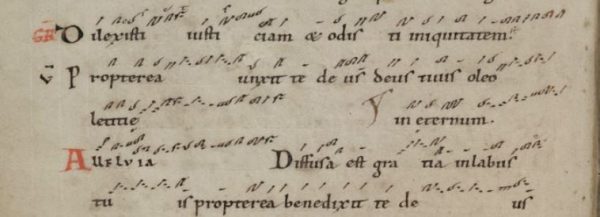 GR Dilexisti iusti ciam & odis ti iniquitatem.
V Propterea unxit te de us deus tuus oleo
letitie V in eternum.
Allelvia Diffusa est gra tia in labiis
tu is propterea benedixit te de us